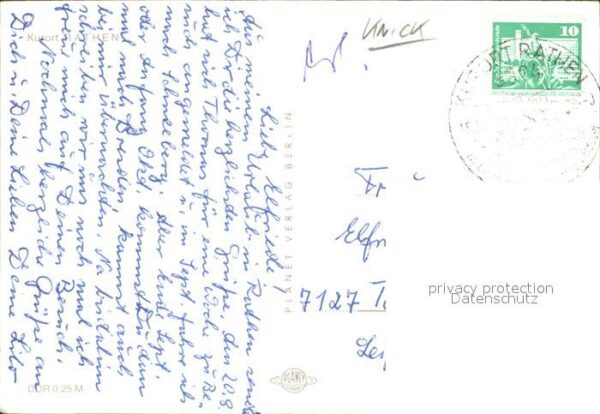 Kurort RATHEN
Liebe Elfriede!
Aus meinem Urlaub in Rathen sende
ich Dir die herzlichsten Grüße. Am 20.8.
hat sich Thomas für eine Woche zu Be-
such angemeldet u. im Sept. fahre ich
nach Schneeberg. Aber Ende Sept.
oder Anfang Okt. kommst Du dann
mal nach Dresden kannst auch
bei mir übernachten. Na bis dahin
schreiben wir uns noch mal ich
freue mich auf Deinen Besuch.
Nochmals herzliche Grüße an
Dich u. Deine Lieben Deine Lilo
DDR 0,25 M
PLANET VERLAG BERLIN
PLANET
KNICK
10
KURORT RATHEN
Fr
Elfr
7127 T
Lei
privacy protection
Datenschutz